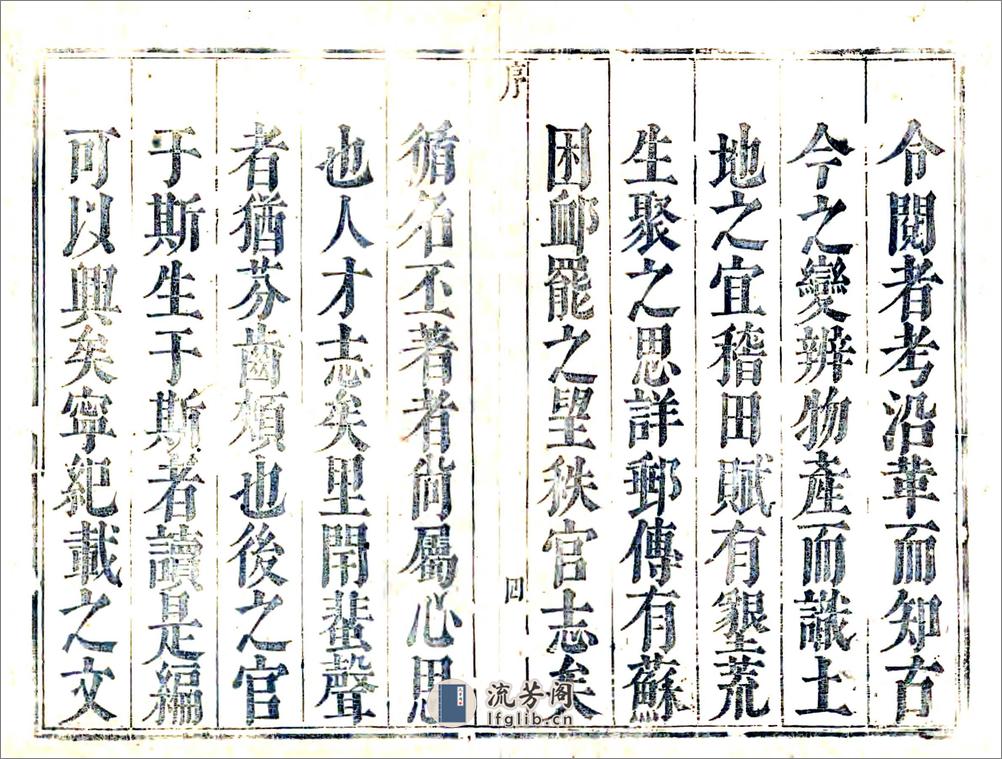 令閱者考沿革而知古
今之變辨物產而識土
地之宜稽田賦有墾荒
生聚之思詳郵傳有蘇
困卹罷之望秩官志矣
序
四
循名丕著者尚屬心思
也人才志矣里閈蜚聲
者猶芬齒頰也後之官
于斯生于斯者讀是編
可以興矣寧紀載之文
流芳阁
lfglib.cn